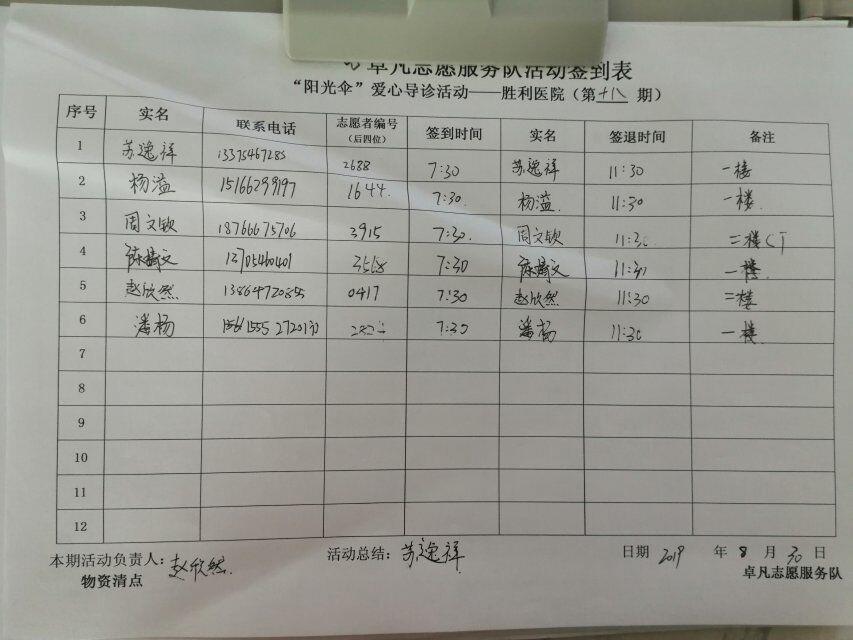 卓凡志愿服务队活动签到表
“阳光伞”爱心导诊活动——胜利医院（第十八期）
序号 实名 联系电话 志愿者编号（后四位） 签到时间 实名 签退时间 备注
1 苏逸祥 13375467285 2688 7:30 苏逸祥 11:30 一楼
2 杨溢 15166299197 1644 7:30 杨溢 11:30 一楼
3 周文钦 18766675706 3915 7:30 周文钦 11:30 二楼CT
4 13705460401 3568 7:30 11:30 一楼
5 赵欣然 13864720855 0417 7:30 赵欣然 11:30 二楼
6 潘杨 7:30 潘杨 11:30 一楼
7
8
9
10
11
12
本期活动负责人：赵欣然 活动总结：苏逸祥 日期 2019 年 8 月 30 日
物资清点 卓凡志愿服务队